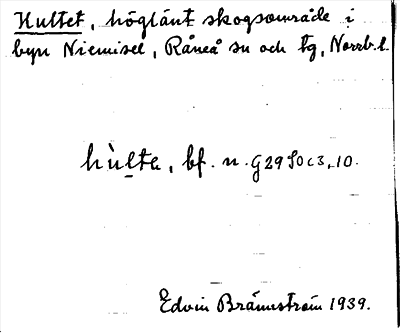 Hultet, höglänt skogsområde i
byn Niemisel, Råneå sn och tg, Norrb. l.
hùlte, bf. n.
Edvin Brännström 1939.